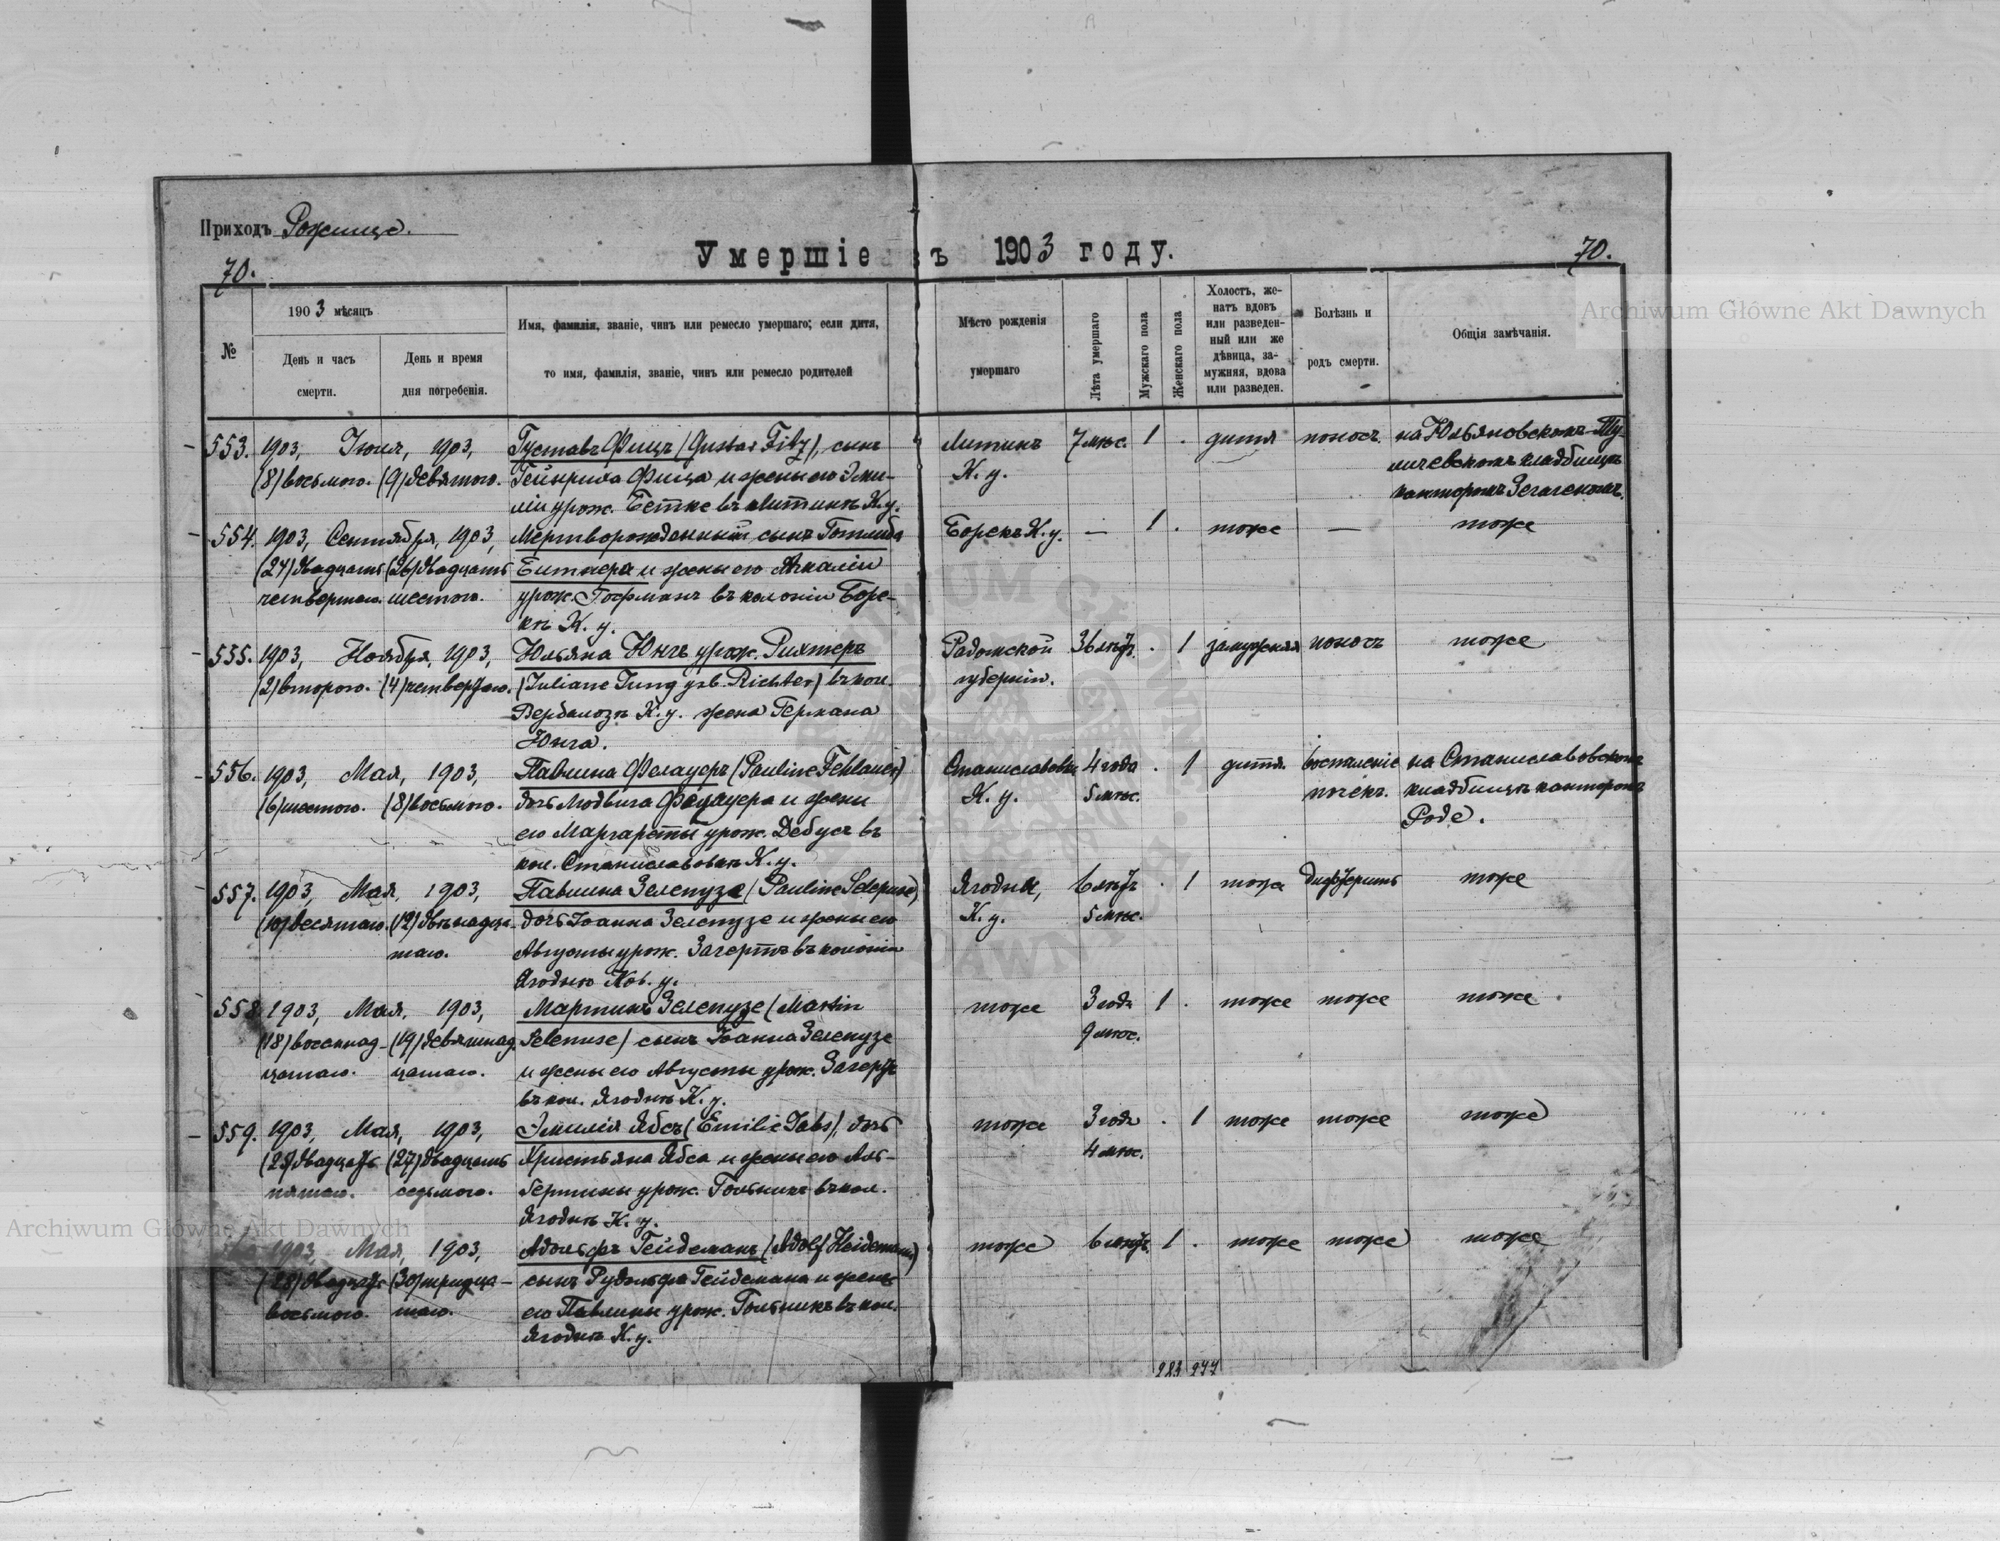 Приходъ Рожище.
Умершіе въ 1903 году.
70.
70.
№
1903 мѣсяцъ
День и часъ смерти.
День и время дня погребенія.
Имя, фамилія, званіе, чинъ или ремесло умершаго; если дитя,
то имя, фамилія, званіе, чинъ или ремесло родителей
Мѣсто рожденія
умершаго
Лѣта умершаго
Мужскаго пола
Женскаго пола
Холостъ, же-
натъ вдовъ
или разведен-
ный или же
дѣвица, за-
мужняя, вдова
или разведен.
Болѣзнь и
родъ смерти.
Общія замѣчанія.
Archiwum Główne Akt Dawnych
553. 1903, Іюля, 1903, Густавъ Фицъ (Gustav Fitz), сынъ Литинъ 7 мѣс. 1 . дитя поносъ на Юльяновскомъ-Ту-
(8) восьмого. (9) девятого. Гейнриха Фица и жены его Эми- К. у. личевскомъ кладбищѣ
ліи урож. Бетке въ Литинѣ К. у. канторомъ
554. 1903, Сентября, 1903, Мертворожденный сынъ Готлиба Борекъ К. у. — 1 . тоже — тоже
(24) двадцать (26) двадцать Битнера и жены его Амаліи
четвертаго. шестого. урож. Гофманъ въ колоніи Боре-
кѣ К. у.
555. 1903, Ноября, 1903, Юльяна Юнгъ урож. Рихтеръ Радомской 36 лѣтъ . 1 замужняя поносъ тоже
(2) второго. (4) четвертаго. (Juliane Jung geb. Richter) въ кол. губерніи.
К. у. жена Германа
Юнга.
556. 1903, Мая, 1903, Павлина Фелауеръ (Pauline Fehlauer) Станиславовка 4 года . 1 дитя. воспаленіе на Станиславовскомъ
(6) шестого. (8) восьмого. дочь Людвига Фелауера и жены К. у. 5 мѣс. почекъ. кладбищѣ канторомъ
его Маргареты урож. Дебусъ въ Роде.
кол. Станиславовкѣ К. у.
557. 1903, Мая, 1903, Павлина Зелепузе (Pauline Selepuse) Ягодня, 6 лѣтъ . 1 тоже дифтеритъ тоже
(10) десятаго. (12) двѣнадца- дочь Іоанна Зелепузе и жены его К. у. 5 мѣс.
таго. Августы урож. Загертъ въ колоніи
Ягодню Ков. у.
558. 1903, Мая, 1903, Мартинъ Зелепузе (Martin тоже 3 года 1 . тоже тоже тоже
(18) восемнад- (19) девятнад- Selepuse) сынъ Іоанна Зелепузе 9 мѣс.
цатаго. цатаго. и жены его Августы урож. Загертъ
въ кол. Ягоднѣ К. у.
559. 1903, Мая, 1903, Эмилія Ябсъ (Emilie Jabs), дочь тоже 3 года . 1 тоже тоже тоже
(25) двадцать (27) двадцать Христьяна Ябса и жены его Аль- 4 мѣс.
пятаго. седьмого. бертины урож. Гольникъ въ кол.
Ягоднѣ К. у.
Archiwum Główne Akt Dawnych
1903, Мая, 1903, Адольфъ Гейдеманъ (Adolf Heidemann) тоже 6 лѣтъ 1 . тоже тоже тоже
(28) двадцать (30) тридца- сынъ Рудольфа Гейдемана и жены
восьмого. таго. его Павлины урож. Гольникъ въ кол.
Ягоднѣ К. у.
283 277